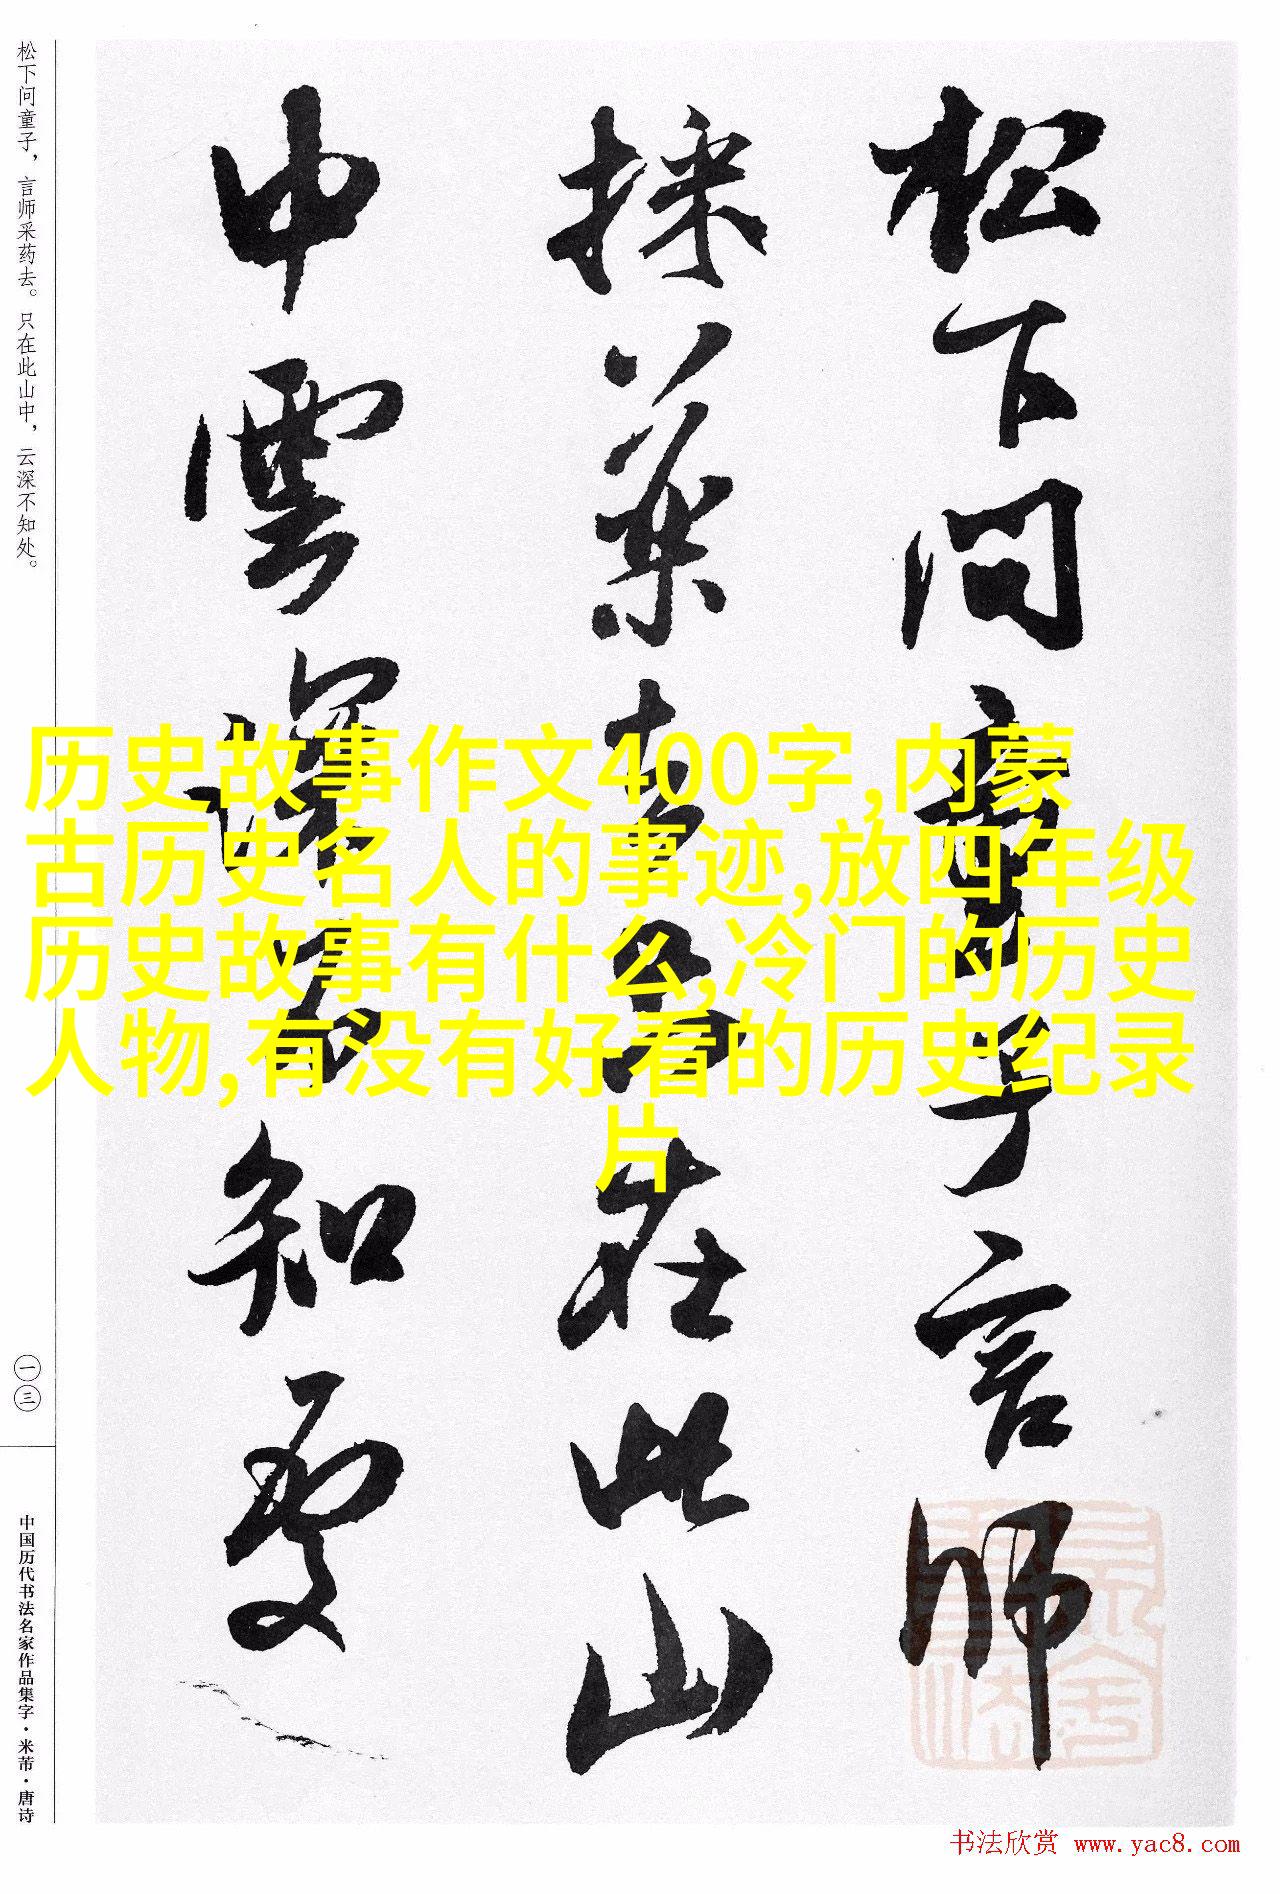 松下問童子言師
採藥去只在此山
中雲深不知處
松下问童子，言师采药去。只在此山中，云深不知处。
一三
中国历代书法名家作品集字·米芾·唐诗
历史故事作文400字,内蒙
古历史名人的事迹,放四年级
历史故事有什么,冷门的历史
人物,有没有好看的历史纪录
片
书法欣赏 www.yac8.com